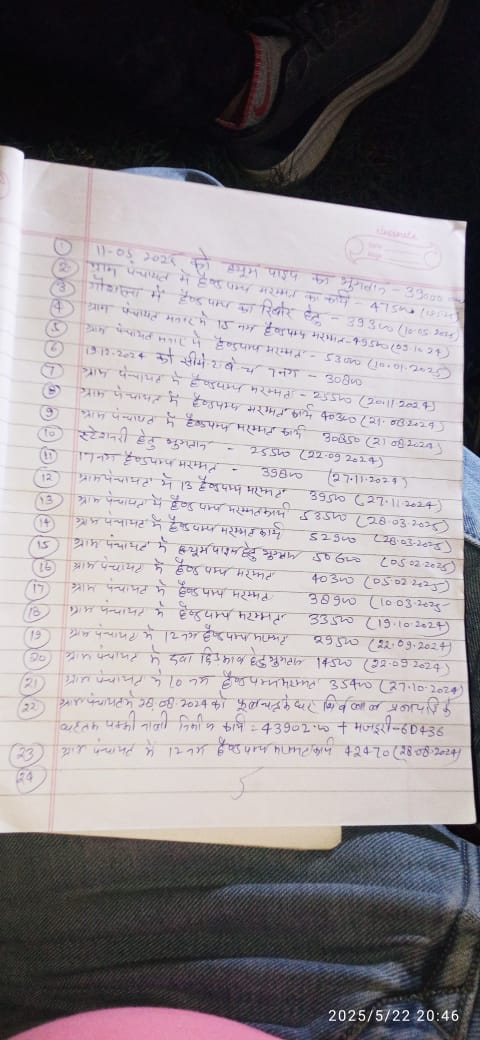 classmate
Date
Page
① 11-05-2025 को ह्यूम पाइप का भुगतान - 39000
② ग्राम पंचायत में हैण्डपम्प मरम्मत का कार्य - 47500
③ गौशाला में हैण्डपम्प का रिबोर हेतु - 39300 (10.05.2024)
④ ग्राम पंचायत में 15 नग हैण्डपम्प मरम्मत - 49500 (09.10.24)
⑤ ग्राम पंचायत में हैण्डपम्प मरम्मत - 53000 (10.01.2025)
⑥ 19.12.2024 को 7 नग - 30800
⑦ ग्राम पंचायत में हैण्डपम्प मरम्मत - 25500 (20.11.2024)
⑧ ग्राम पंचायत में हैण्डपम्प मरम्मत कार्य 40300 (21.08.2024)
⑨ ग्राम पंचायत में हैण्डपम्प मरम्मत कार्य 30850 (21.08.2024)
⑩ स्टेशनरी हेतु भुगतान - 25500 (22.09.2024)
⑪ 17 नग हैण्डपम्प मरम्मत - 39800 (27.11.2024)
⑫ ग्राम पंचायत में 13 हैण्डपम्प मरम्मत 39500 (27.11.2024)
⑬ ग्राम पंचायत में हैण्डपम्प मरम्मत कार्य 53500 (28.03.2025)
⑭ ग्राम पंचायत में हैण्डपम्प मरम्मत कार्य 52900 (28.03.2025)
⑮ ग्राम पंचायत में ह्यूम पाइप हेतु भुगतान 50600 (05.02.2025)
⑯ ग्राम पंचायत में हैण्डपम्प मरम्मत 40300 (05.02.2025)
⑰ ग्राम पंचायत में हैण्डपम्प मरम्मत 38900 (10.03.2025
⑱ ग्राम पंचायत में हैण्डपम्प मरम्मत 33500 (19.10.2024)
⑲ ग्राम पंचायत में 12 नग हैण्डपम्प मरम्मत 29500 (22.09.2024)
⑳ ग्राम पंचायत में दवा छिड़काव हेतु भुगतान 14500 (22.09.2024)
㉑ ग्राम पंचायत में 10 नग हैण्डपम्प मरम्मत 35400 (27.10.2024)
㉒ ग्राम पंचायत में 28.08.2024 को फूलचन्द्र के घर शिवलाल प्रजापति के
घर तक पक्की नाली निर्माण कार्य = 43902.00 + मजदूरी - 60436
㉓ ग्राम पंचायत में 12 नग हैण्डपम्प मरम्मत कार्य 42470 (28.08.2024)
㉔
2025/5/22 20:46